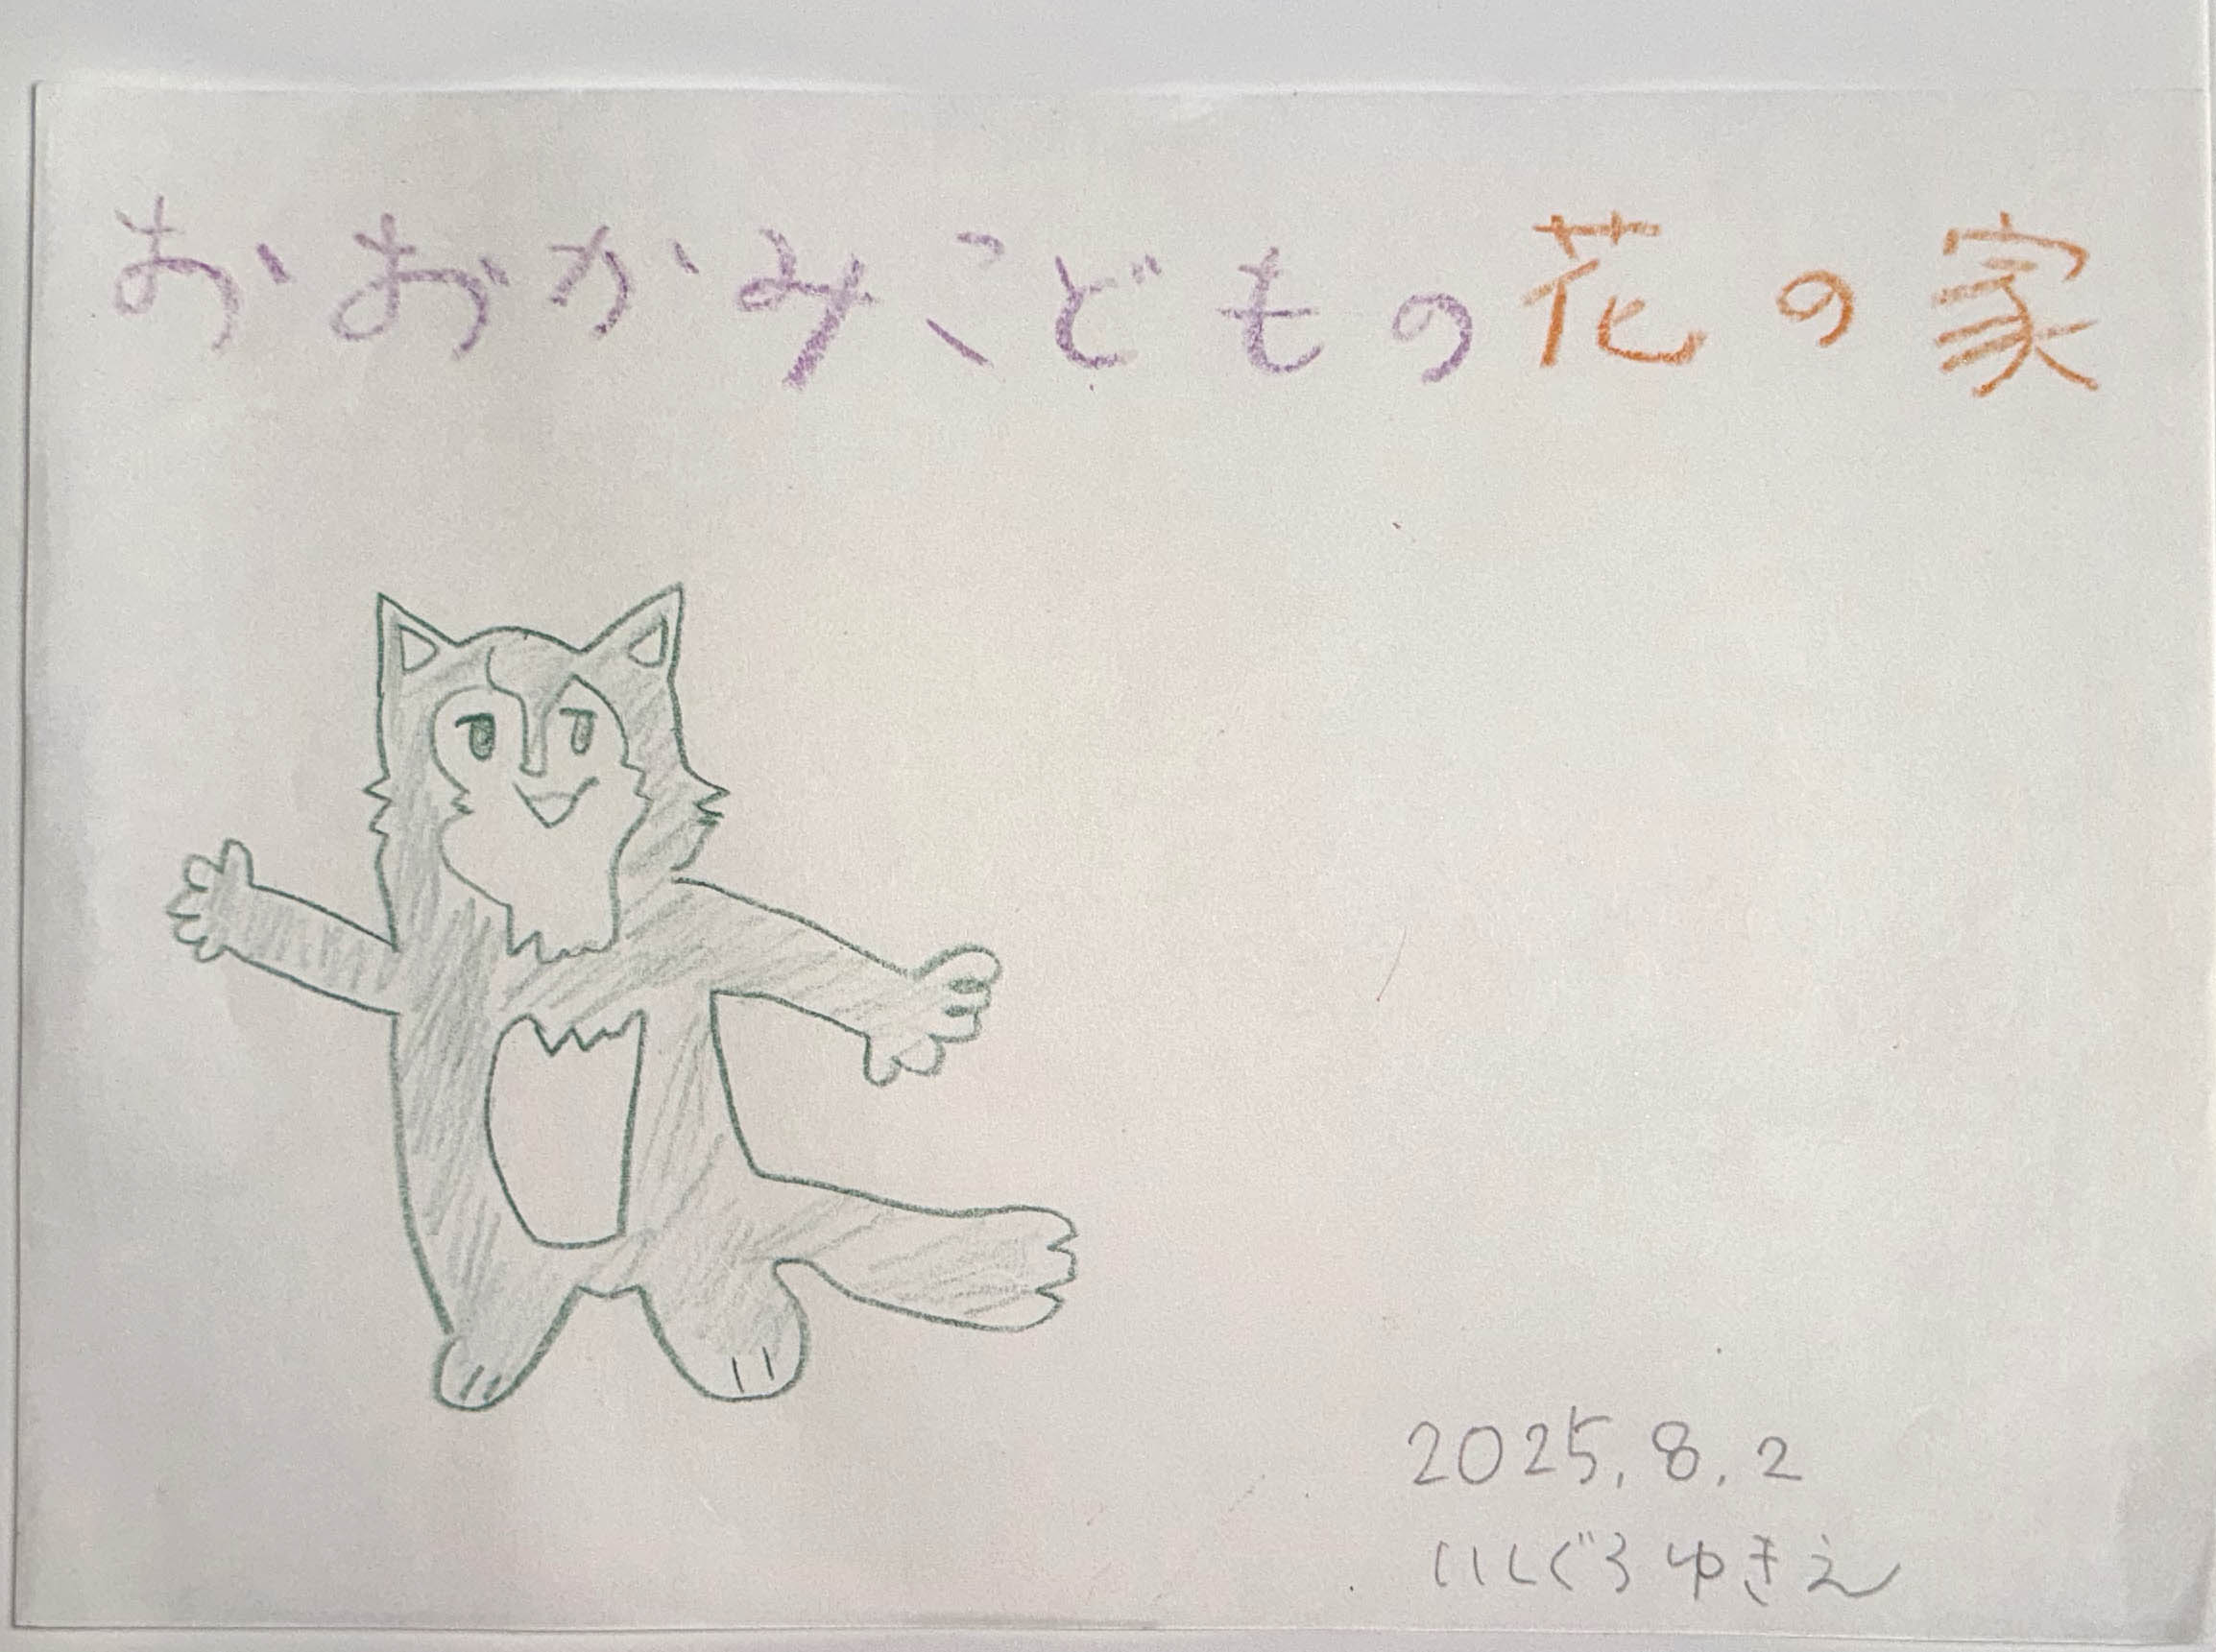 おおかみこどもの花の家
2025.8.2
いしぐろゆきえ